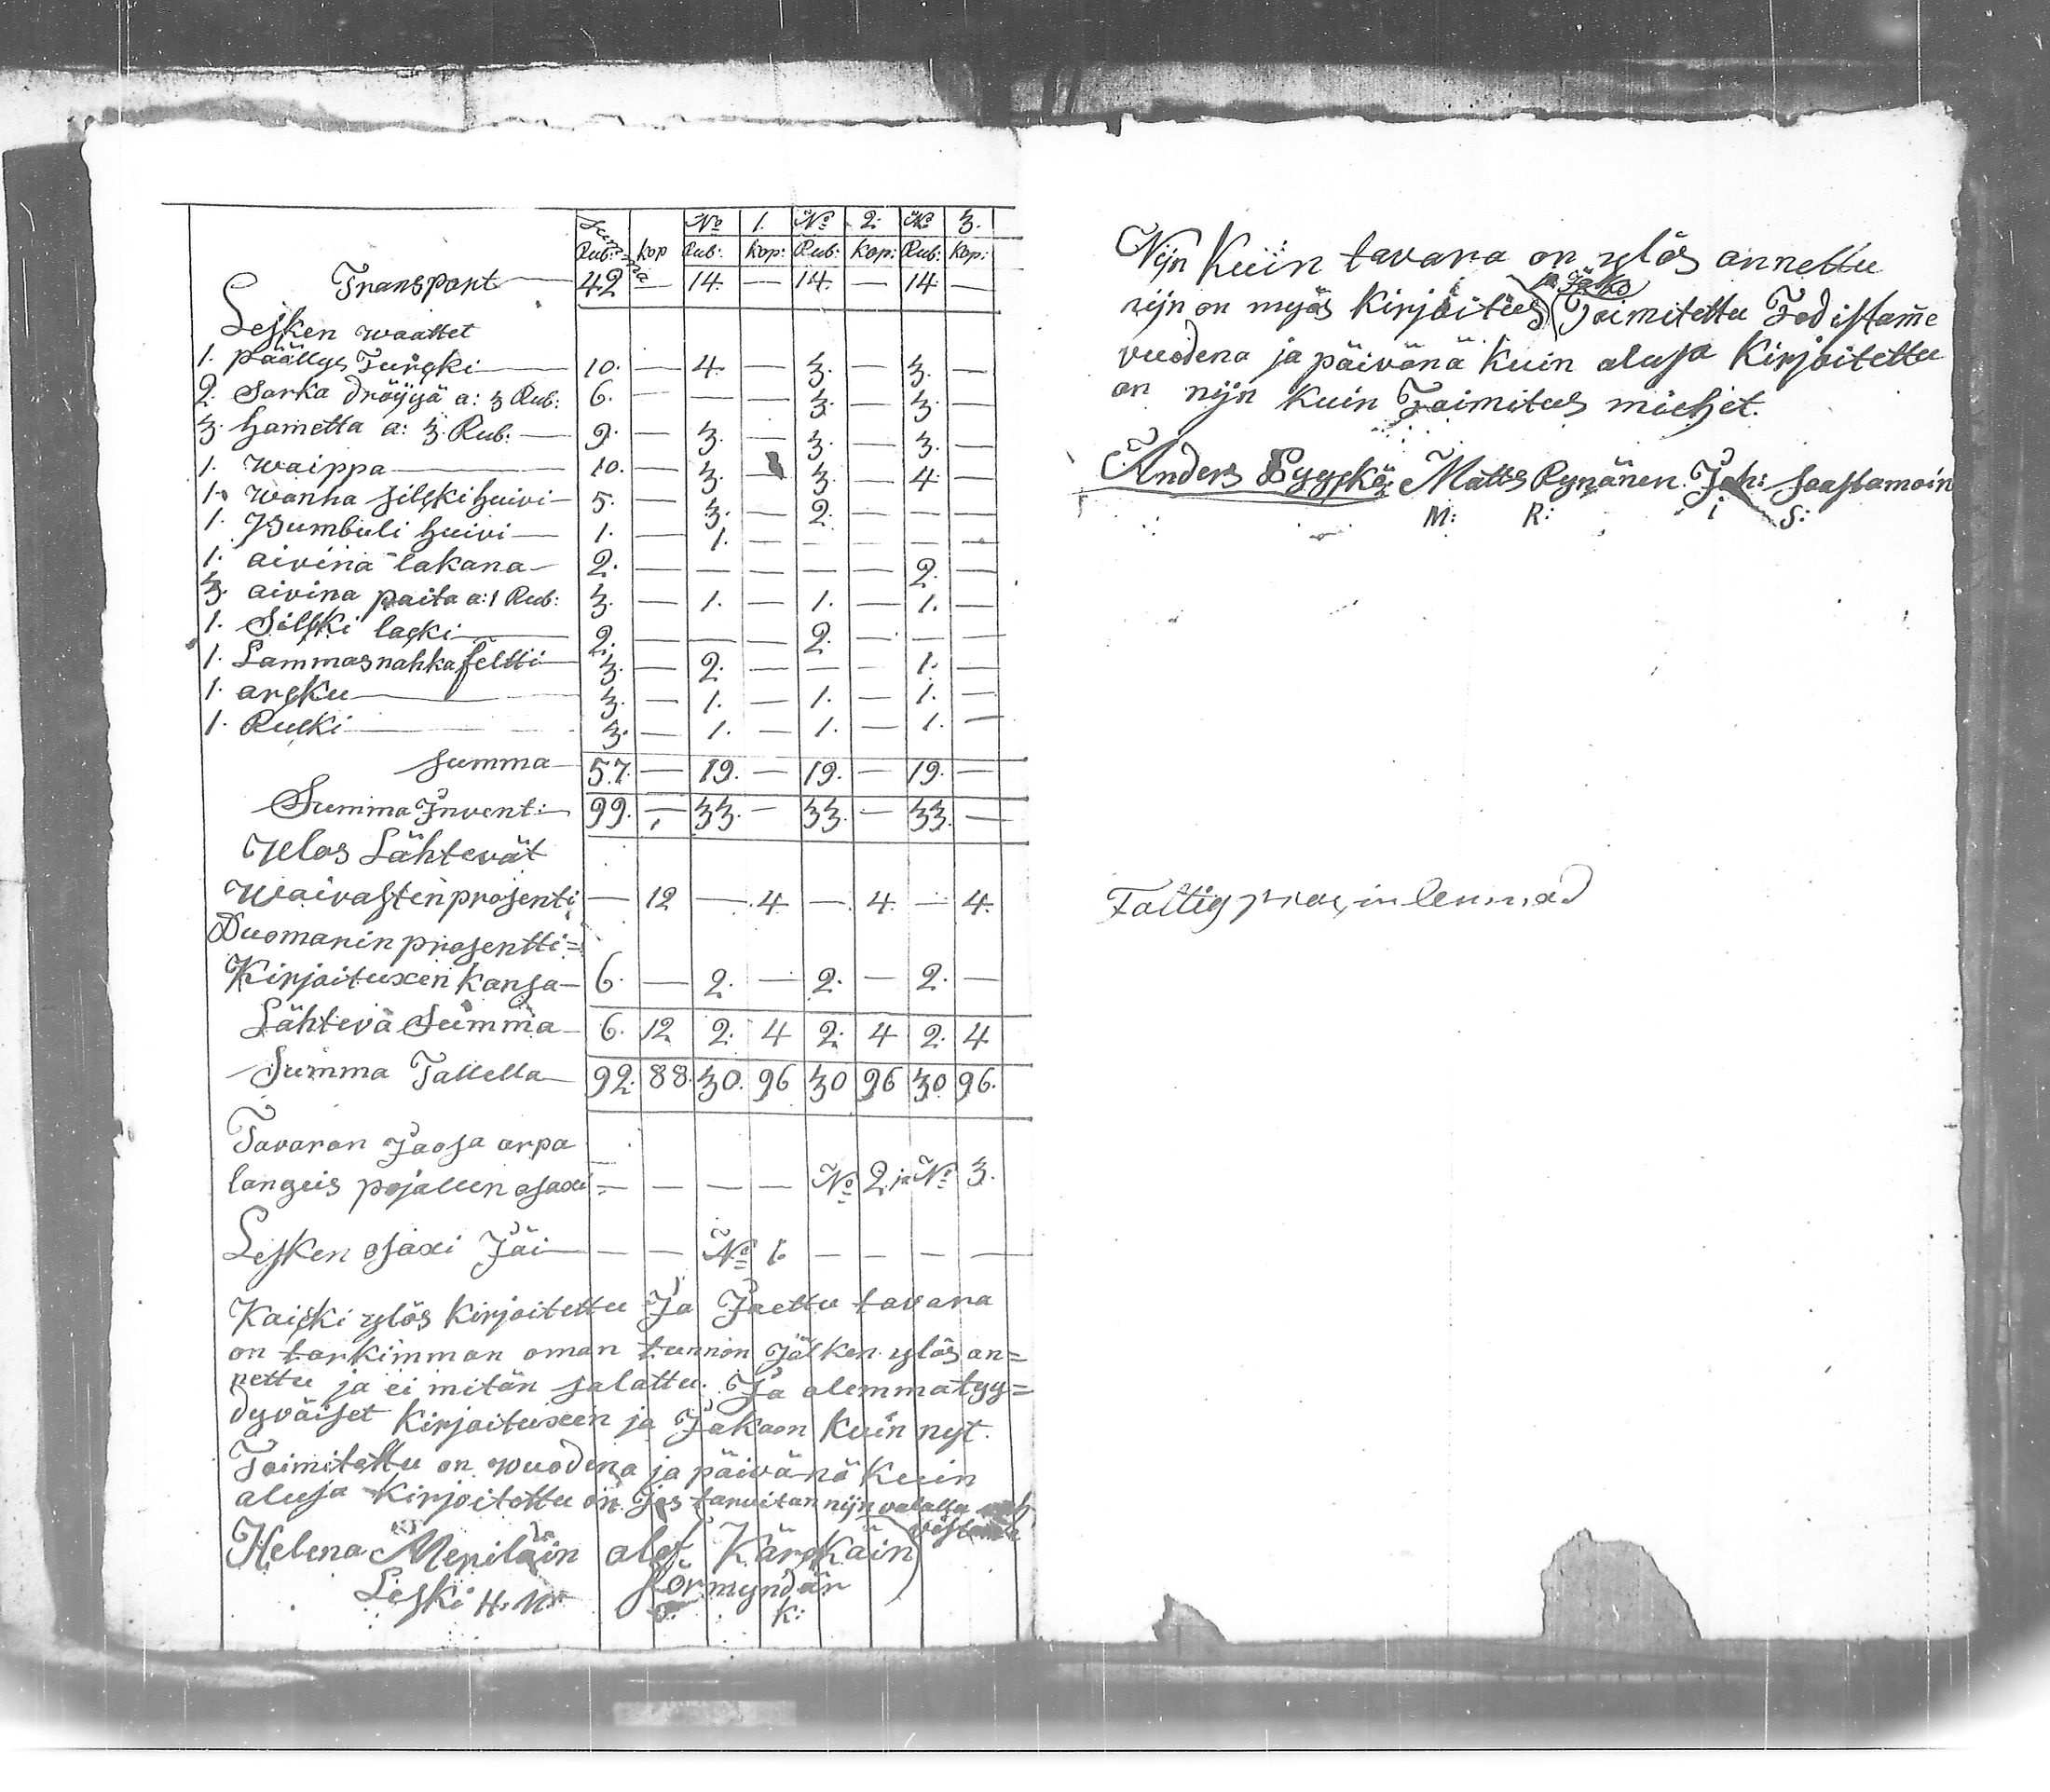 Summa № 1. № 2. № 3.
Rub: kop Rub: kop: Rub: kop: Rub: kop:
Transport — 42 — 14. — 14. — 14 —
Lesken waattet
1. päällys Turcki — 10. — 4. — 3. — 3. —
2. Sarka dröijyä a: 3 Rub: 6. — — — 3. — 3. —
3. hametta a: 3. Rub: — 9. — 3. — 3. — 3. —
1. waippa — 10. — 3. — 3. — 4. —
1. wanha silcki huivi — 5. — 3. — 2. — — —
1. Bumbuli huivi — 1. — 1. — — — — —
1. aivina lakana — 2. — — — — — 2. —
3. aivina paita a: 1 Rub: 3. — 1. — 1. — 1. —
1. Silcki lacki — 2. — — — 2. — — —
1. Lammasnahka feltti — 3. — 2. — — — 1. —
1. arcku — 3. — 1. — 1. — 1. —
1. Rucki — 3. — 1. — 1. — 1. —
Summa — 57. — 19. — 19. — 19. —
Summa Invent: — 99. — 33. — 33. — 33. —
Ulos Lähtevät
Waivasten prosenti — 12 — 4 — 4. — 4.
Duomarin prosentti =
Kirjoituxen kansa — 6. — 2. — 2. — 2. —
Lähtevä Summa — 6. 12 2. 4 2. 4 2. 4
Summa Tallella — 92. 88. 30. 96 30 96 30 96.
Tavaran Jaosa arpa
langeis pojallen osaxi = — — — — № 2. ja № 3.
Lesken osaxi Jäi — — № 1. — — — —
Kaicki ylös kirjoitettu Ja Jaettu tavara
on tarkimman oman tunnon jälken ylös an=
nettu ja ei mitän salattu. Ja olemma tyy=
dyväiset kirjoituxeen ja Jakoon kuin nyt
Toimitettu on wuodena ja päivänä kuin
alusa kirjoitettu on. Jos tarvitan nijn valalla
Helena Meriläin olof Kärckäin
Leski H. M: förmyndär
o: K:
Nijn kuin tavara on ylös annettu
ja Jako
nijn on myös kirjoitus Toimitettu Todistamme
vuodena ja päivänä kuin alusa kirjoitettu
on nijn kuin Toimitus miehet.
Anders Lyyckä: Matts Rynänen Joh: Saastamoin
M: R: i S: